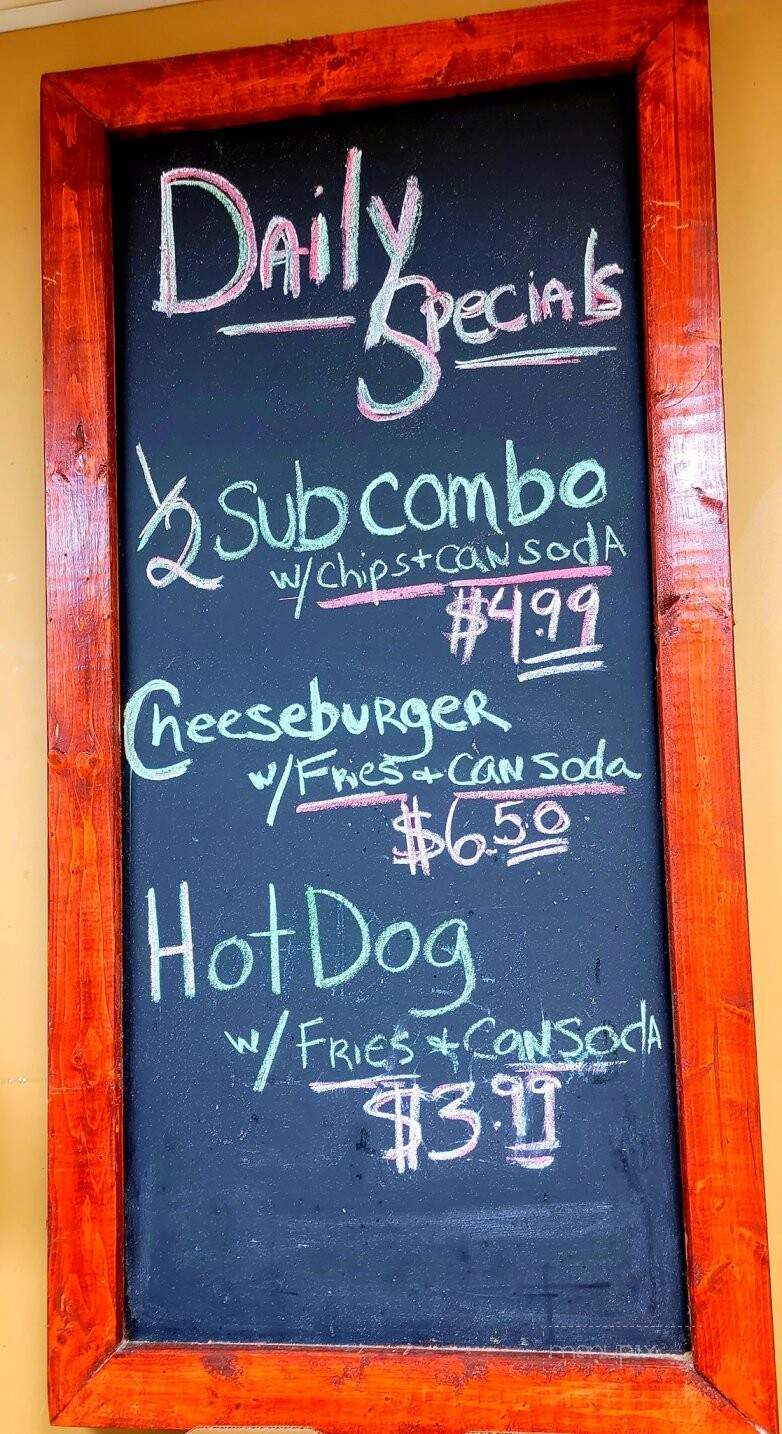 Daily
Specials
1/2 Sub combo
w/chips + can soda
$4.99
Cheeseburger
w/Fries + can soda
$6.50
Hot Dog
w/Fries + Can Soda
$3.99
menupix